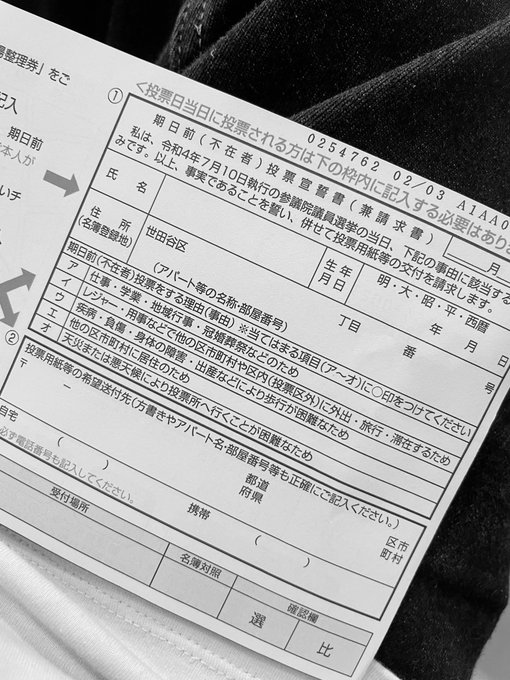 場整理券」をご
記入
期日前
本人が
いチ
①
<投票日当日に投票される方は下の枠内に記入する必要はありま
0254762 02/03 A1AA0
期日前(不在者)投票宣誓書(兼請求書)
月
私は、令和4年7月10日執行の参議院議員選挙の当日、下記の事由に該当する
みです。以上、事実であることを誓い、併せて投票用紙等の交付を請求します。
氏 名
生年
月日
明・大・昭・平・西暦
年 月 日
住 所
(名簿登録地)
世田谷区
丁目 番 号
(アパート等の名称・部屋番号)
期日前(不在者)投票をする理由(事由) ※当てはまる項目(ア~オ)に○印をつけてください
ア 仕事・学業・地域行事・冠婚葬祭などのため
イ レジャー・用事などで他の区市町村や区内(投票区外)に外出・旅行・滞在するため
ウ 疾病・負傷・身体の障害・出産などにより歩行が困難なため
エ 他の区市町村に居住のため
オ 天災または悪天候により投票所へ行くことが困難なため
②
投票用紙等の希望送付先(方書きやアパート名・部屋番号等も正確にご記入ください。)
〒 -
都道
府県
区市
町村
自宅 ( )
携帯 ( )
必ず電話番号も記入してください。
受付場所
名簿対照
確認欄
選
比